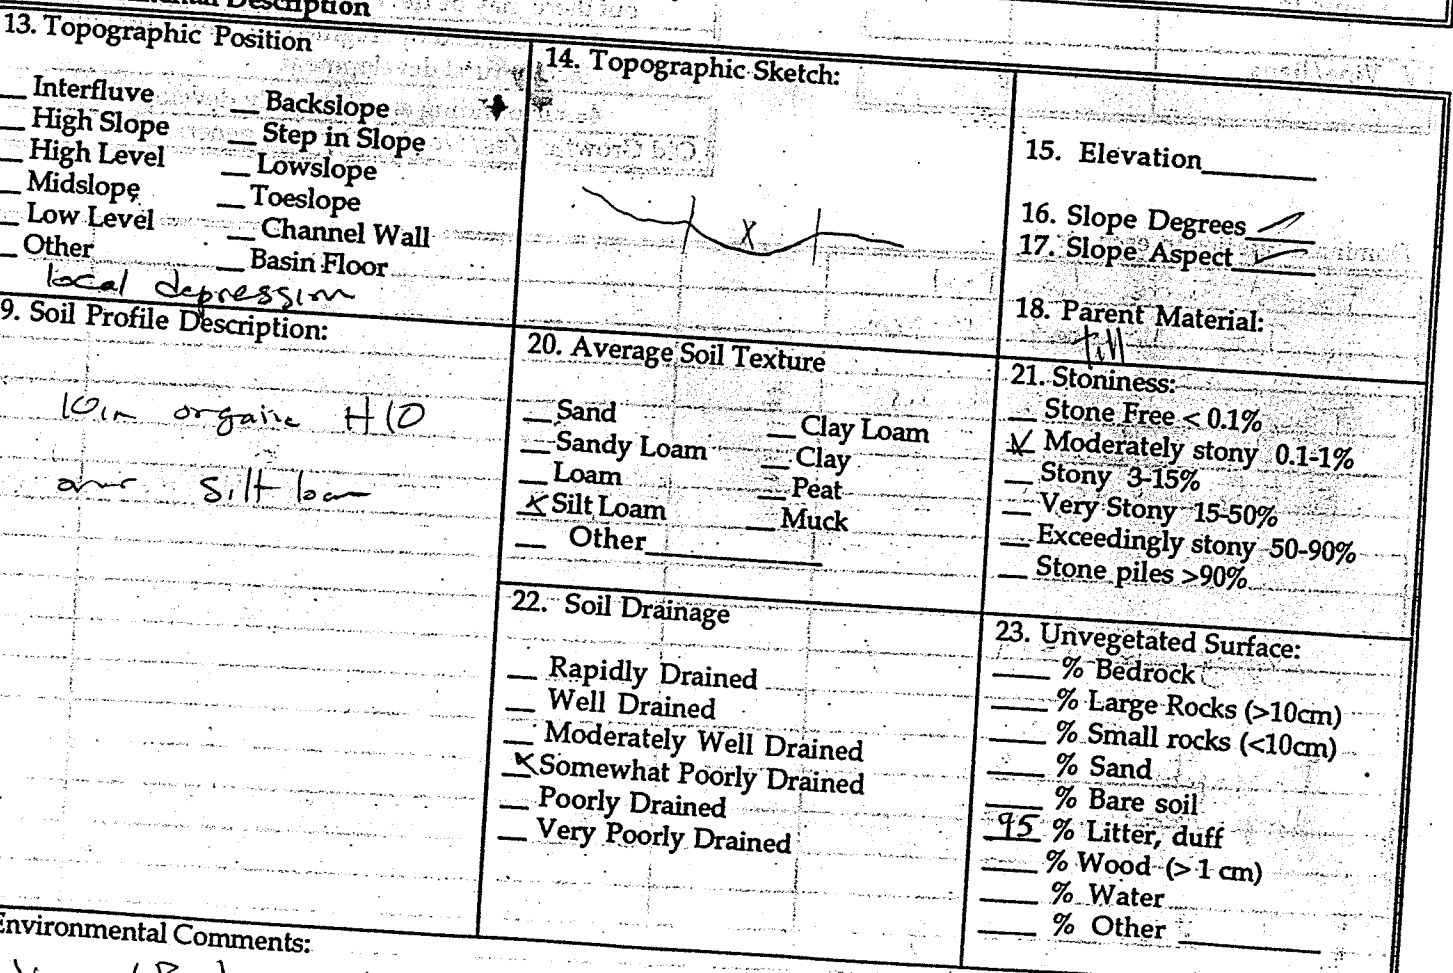 Description
13. Topographic Position
__ Interfluve __ Backslope
__ High Slope __ Step in Slope
__ High Level __ Lowslope
__ Midslope __ Toeslope
__ Low Level __ Channel Wall
__ Other __ Basin Floor
local depression
14. Topographic Sketch:
X
15. Elevation________
16. Slope Degrees_____
17. Slope Aspect______
18. Parent Material:
till
9. Soil Profile Description:
10in H10
silt loam
20. Average Soil Texture
__ Sand __ Clay Loam
__ Sandy Loam __ Clay
__ Loam __ Peat
X Silt Loam __ Muck
__ Other____________
21. Stoniness:
__ Stone Free < 0.1%
✓ Moderately stony 0.1-1%
__ Stony 3-15%
__ Very Stony 15-50%
__ Exceedingly stony 50-90%
__ Stone piles >90%
22. Soil Drainage
__ Rapidly Drained
__ Well Drained
__ Moderately Well Drained
X Somewhat Poorly Drained
__ Poorly Drained
__ Very Poorly Drained
23. Unvegetated Surface:
____ % Bedrock
____ % Large Rocks (>10cm)
____ % Small rocks (<10cm)
____ % Sand
____ % Bare soil
95 % Litter, duff
____ % Wood (> 1 cm)
____ % Water
____ % Other __________
Environmental Comments: